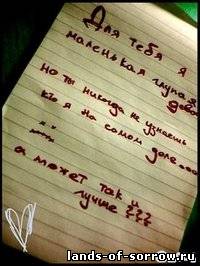 Для тебя я
маленькая глупая
но ты никогда не узнаешь
кто я на самом деле...
а может так и
лучше ???
lands-of-sorrow.ru